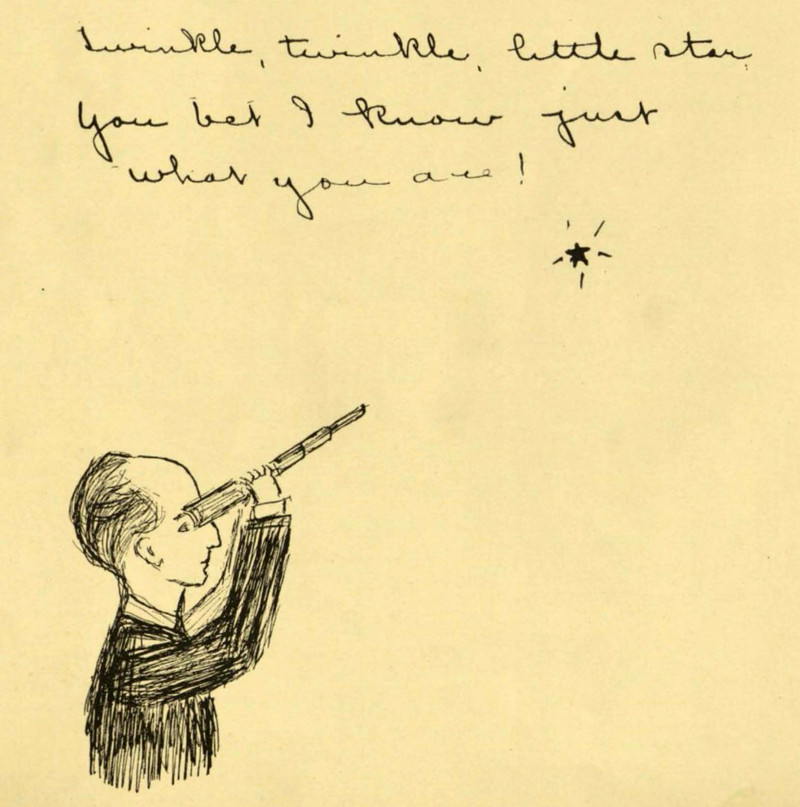 Twinkle, twinkle, little star,
You bet I know just
what you are!